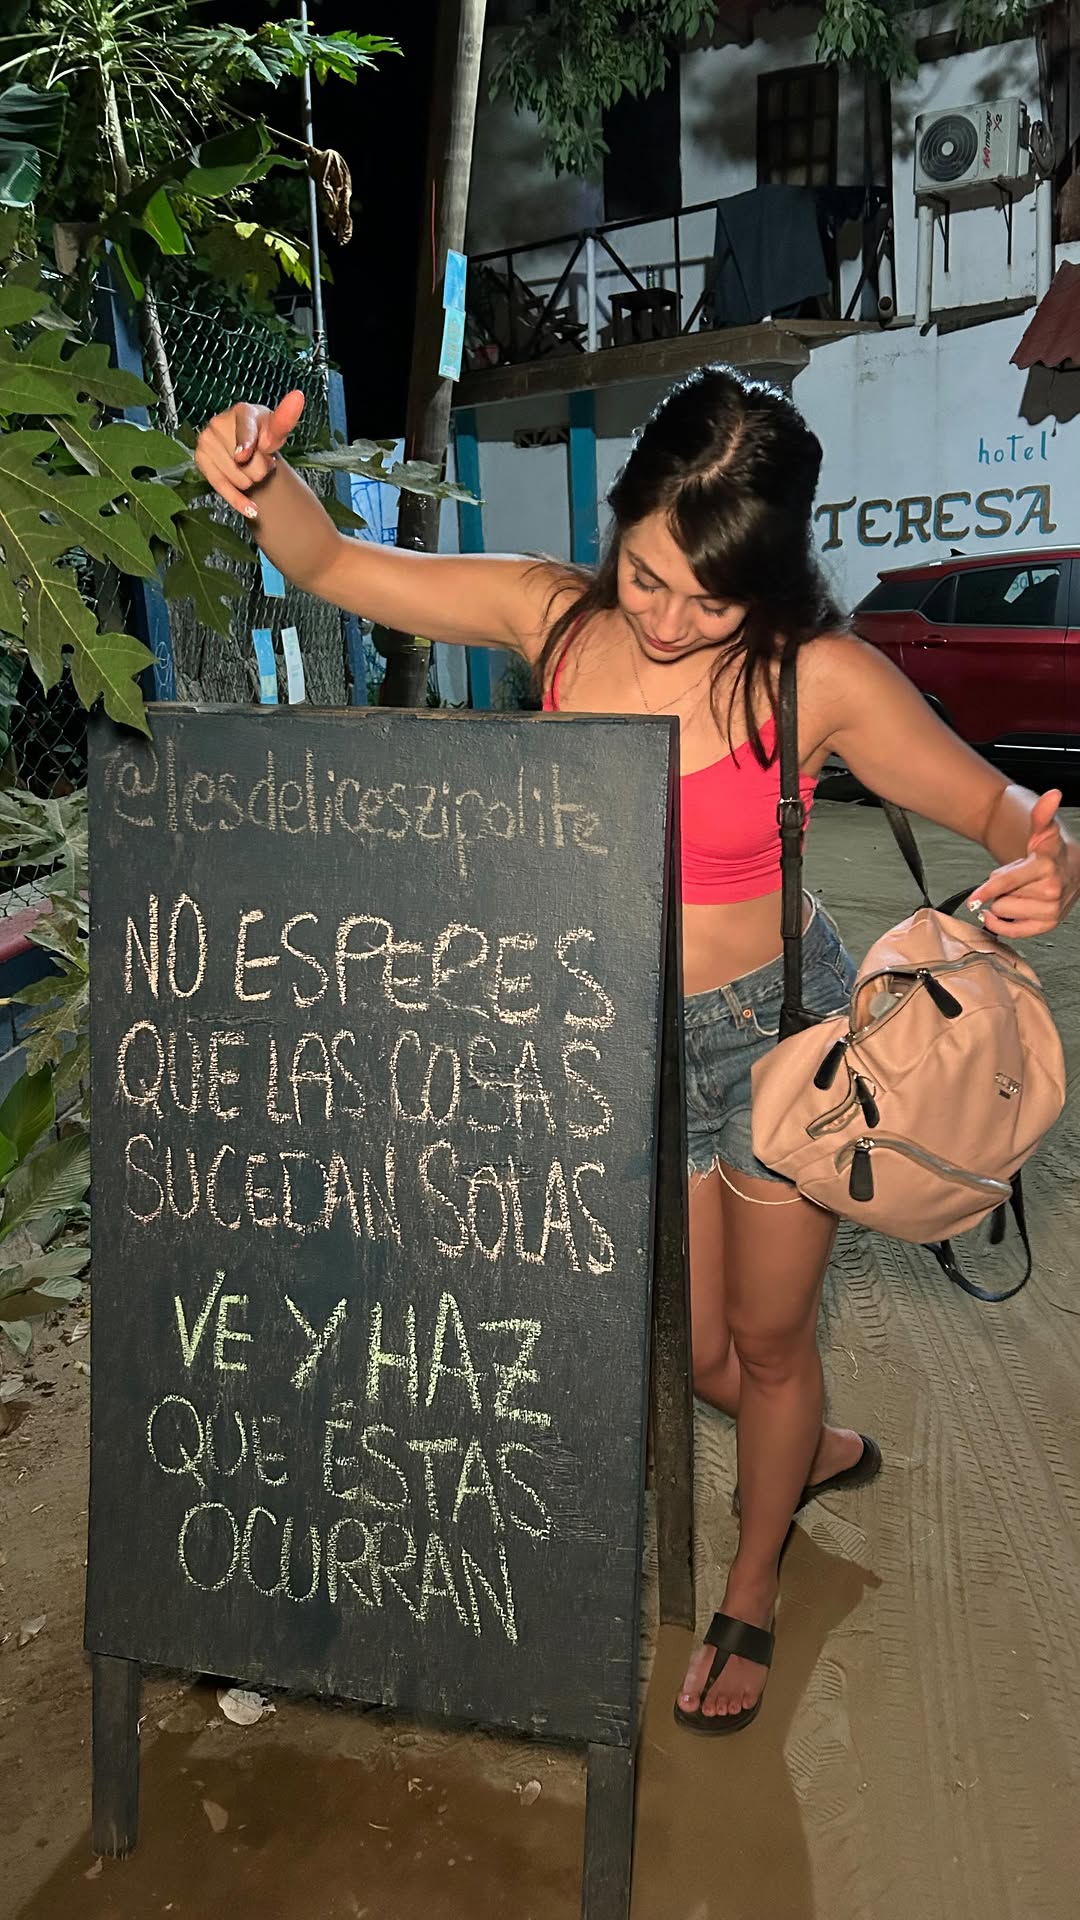 @lasdeliceszipolite
NO ESPERES
QUE LAS COSAS
SUCEDAN SOLAS
VE Y HAZ
QUE ÉSTAS
OCURRAN
mirage X2
hotel
TERESA